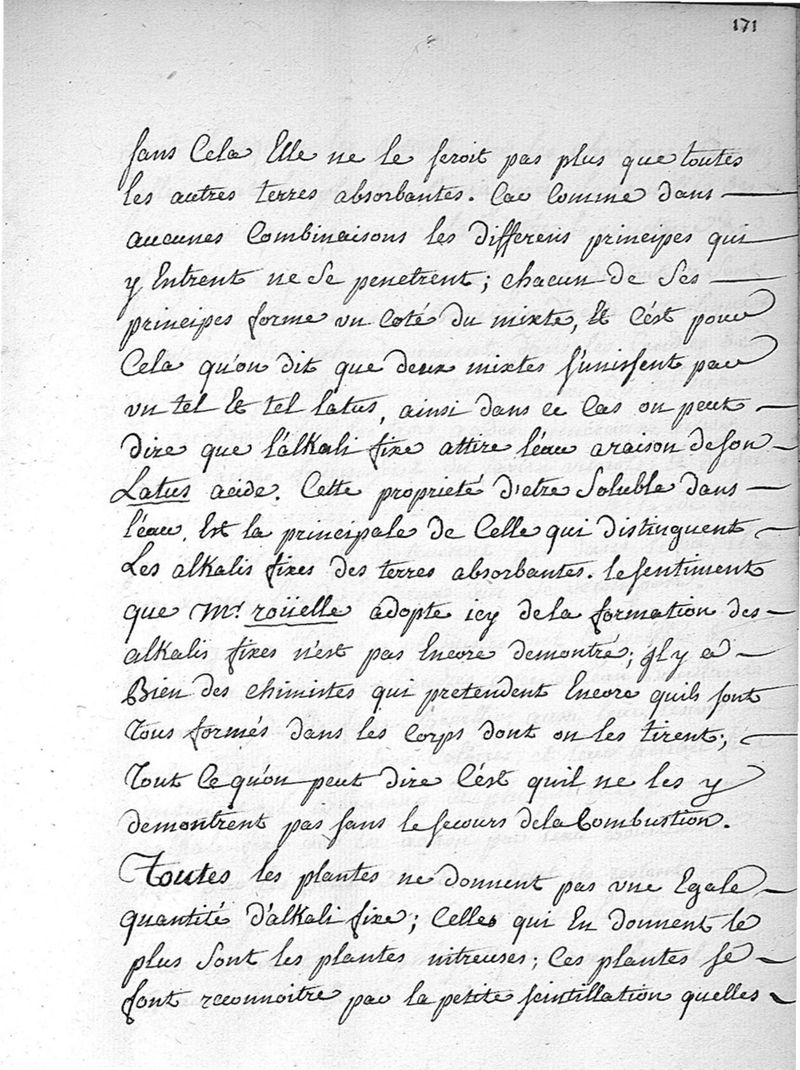 171
sans Cela Elle ne le seroit pas plus que toutes
les autres terres absorbantes. Car Comme dans
aucunes Combinaisons les differens principes qui
y Entrent ne se penetrent; chacun de ses
principes forme un coté du mixte, Et C'ést pour
Cela qu'on dit que deux mixtes s'unissent par
un tel Et tel latus, ainsi dans ce Cas on peut
dire que l'álkali fixe attire l'éau araison de son
Latus acide. Cette proprieté d'etre Soluble dans
l'éau, Est la principale de Celle qui distinguent
Les alkalis fixes des terres absorbantes. le sentiment
que Mr. roüelle adopte icy dela formation des
alkalis fixes n'est pas Encore demontré; il y a
Bien des chimistes qui pretendent Encore quils sont
Tous formés dans les Corps dont on les tirent;
Tout Ce qu'on peut dire C'ést quil ne les y
demontrent pas sans le secours dela Combustion.
Toutes les plantes ne donnent pas une Egale
quantité d'alkali fixe; Celles qui En donnent le
plus sont les plantes nitreuses; Ces plantes se
font reconnoitre par la petite scintillation quelles